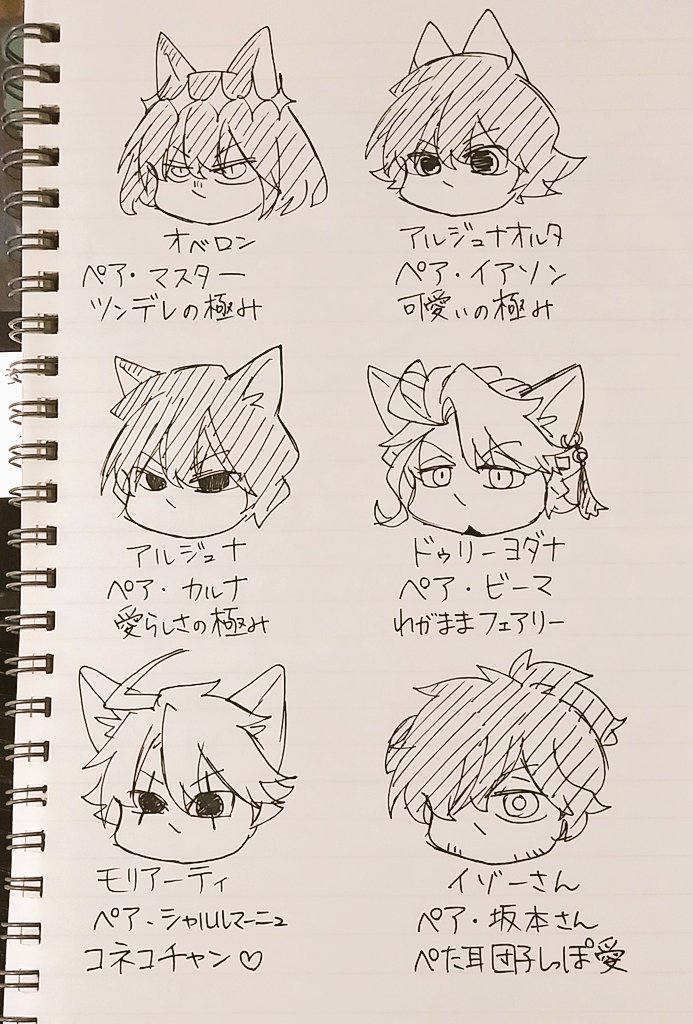 オベロン
ペア・マスター
ツンデレの極み
アルジュナオルタ
ペア・イアソン
可愛いの極み
アルジュナ
ペア・カルナ
愛らしさの極み
ドゥリーヨダナ
ペア・ビーマ
わがままフェアリー
モリアーティ
ペア・シャルルマーニュ
コネコチャン♡
イゾーさん
ペア・坂本さん
ぺた耳団子しっぽ愛